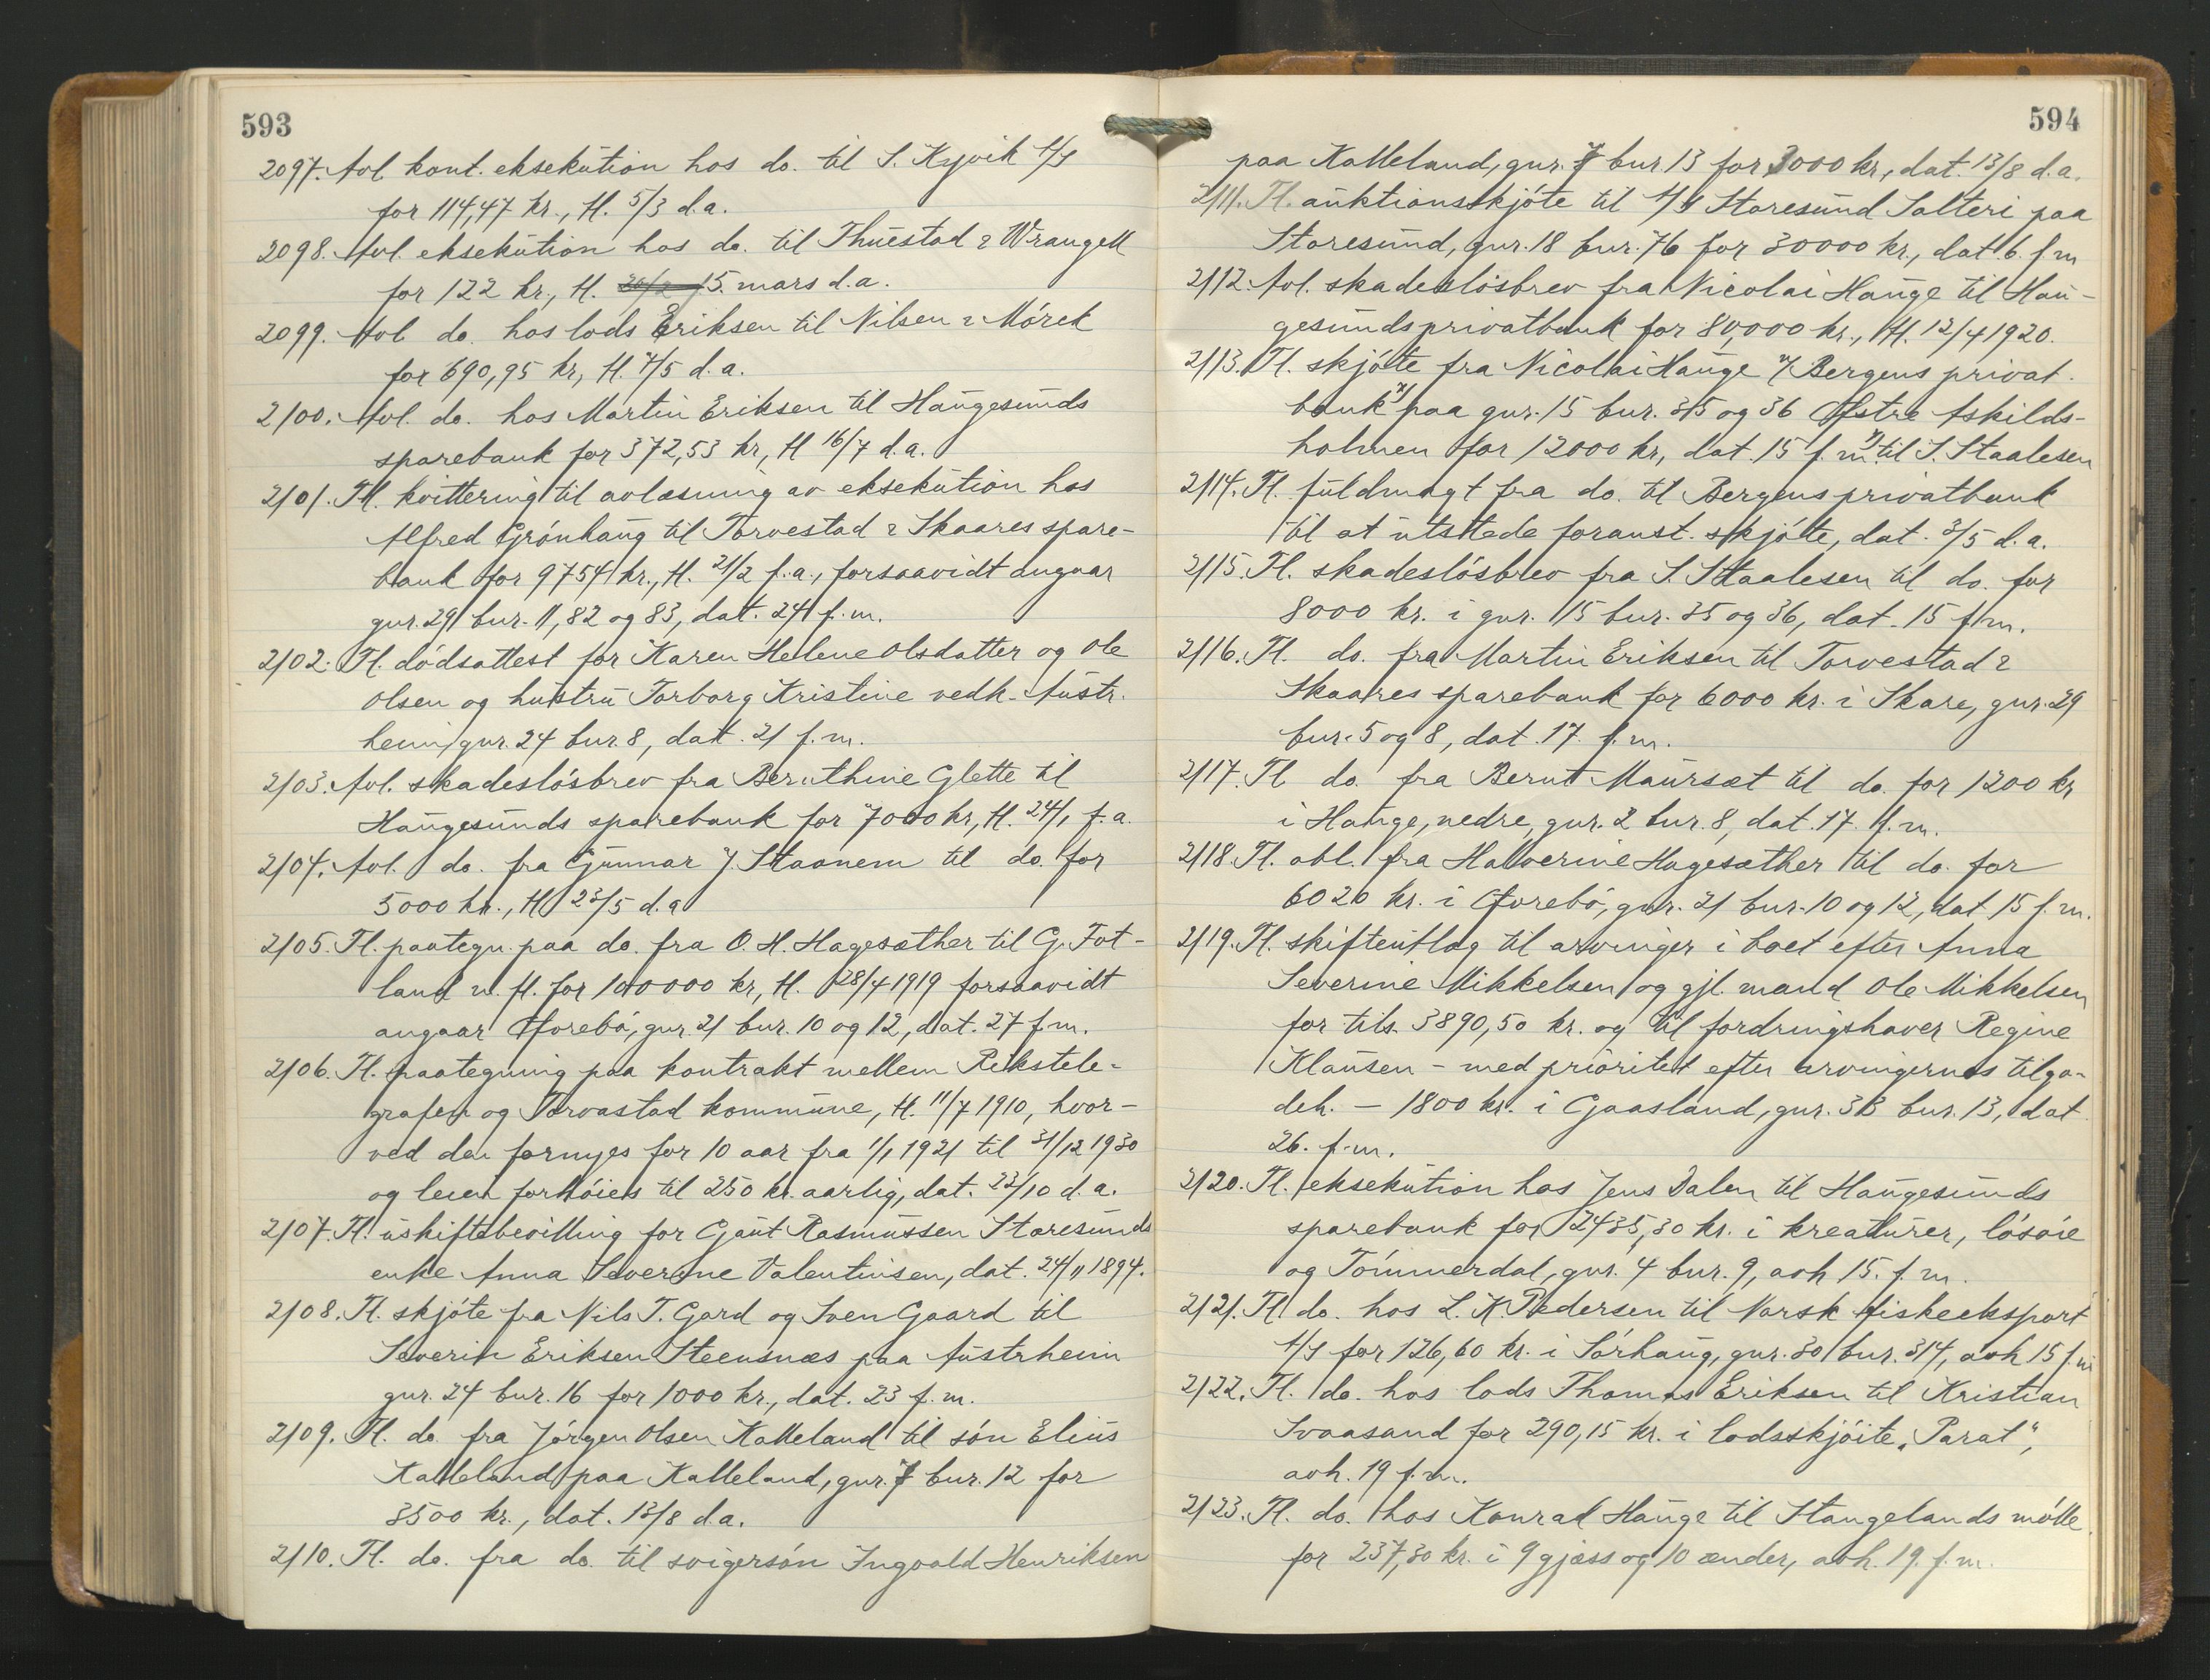 593
2097. Avl. kont. eksekution hos do. til S. Kyvik A/S
for 114,47 kr., tl. 5/3 d.a.
2098. Avl. eksekution hos do. til Thuestad & Wrangell
for 122 kr., tl. 5. mars d.a.
2099. Avl do. hos lods Eriksen til Nilsen & Mórck
for 690,95 kr, tl. 7/5 d.a.
2100. Avl. do. hos Martin Eriksen til Haugesunds
sparebank for 372,53 kr, tl 16/7 d.a.
2101. Tl. kvittering til avlæsning av eksekution hos
Alfred Grónhaug til Torvestad & Skaares spare-
bank for 9754 kr., tl. 21/2 f.a., forsaavidt angaar
gnr. 29 bnr. 11, 82 og 83, dat. 24 f.m.
2102. Tl. dódsattest for Karen Helene Olsdatter og Ole
Olsen og hustru Torborg Kristine vedk. Austr-
heim, gnr. 24 bnr. 8, dat. 21 f.m.
2103. Avl. skadeslósbrev fra Bernthine Glette til
Haugesunds sparebank for 7000 kr, tl. 24/1 f.a.
2104. Avl. do. fra Gunnar J. Staanem til do. for
5000 kr., tl 23/5 d.a
2105. Tl. paategn. paa do. fra O. H. Hagesæther til G. Fot-
land m. fl. for 100000 kr, tl. 28/4 1919 forsaavidt
angaar Óvrebó, gnr. 21 bnr. 10 og 12, dat. 27 f.m.
2106. Tl. paategning paa kontrakt mellem Rikstele-
grafen og Torvastad kommune, tl. 11/7 1910, hvor-
ved den fornyes for 10 aar fra 1/1 1921 til 31/12 1930
og leien forhóies til 250 kr. aarlig, dat. 22/10 d.a.
2107. Tl. uskiftebevilling for Gaut Rasmussen Storesunds
enke Anna Severine Valentinsen, dat. 24/11 1894.
2108. Tl. skjóte fra Nils T. Gard og Sven Gaard til
Severin Eriksen Steensnæs paa Austrheim
gnr. 24 bnr. 16 for 1000 kr., dat. 23 f.m.
2109. Tl. do fra Jórgen Olsen Kalleland til són Elius
Kalleland paa Kalleland, gnr. 7 bnr. 12 for
3500 kr., dat. 13/8 d.a.
2110. Tl. do. fra do. til svigersón Ingvald Henriksen
594
paa Kalleland, gnr. 7 bnr. 13 for 3000 kr, dat. 13/8 d.a.
2111. Tl. auktionsskjóte til A/S Storesund Salteri paa
Storesund, gnr. 18 bnr. 76 for 30000 kr., dat. 6. f.m
2112. Avl. skadeslósbrev fra Nicolai Hauge til Hau-
gesunds privatbank for 80,000 kr., tl. 12/4 1920.
2113. Tl. skjóte fra Nicolai Hauge v/ Bergens privat-
bank x) paa gnr. 15 bnr. 35 og 36 Óstre Askilds-
holmen for 12000 kr, dat. 15 f.m. x) til S. Staalesen
2114. Tl. fuldmagt fra do. til Bergens privatbank
til at utstede foranst. skjóte, dat. 3/5 d.a.
2115. Tl. skadeslósbrev fra S. Staalesen til do. for
8000 kr. i gnr. 15 bnr. 35 og 36, dat. 15 f.m.
2116. Tl. do. fra Martin Eriksen til Torvestad &
Skaares sparebank for 6000 kr. i Skare, gnr. 29
bnr. 5 og 8, dat. 17. f.m.
2117. Tl do. fra Bernt Maursæt til do. for 1200 kr
i Hauge, nedre, gnr. 2 bnr. 8, dat. 17. f.m.
2118. Tl. obl. fra Halverine Hagesæther til do. for
6020 kr. i Óvrebó, gnr. 21 bnr. 10 og 12, dat 15 f.m.
2119. Tl. skifteutlæg til arvinger i boet efter Anna
Severine Mikkelsen og gjl. mand Ole Mikkelsen
for tils. 3890,50 kr. og til fordringshaver Regine
Klausen - med prioritet efter arvingernes tilgo-
deh. - 1800 kr. i Gaasland, gnr. 33 bnr. 13, dat
26. f.m.
2120. Tl. eksekution hos Jens Dalen til Haugesunds
sparebank for 2435,30 kr. i kreaturer, lósóie
og Tómmerdal, gnr. 4 bnr. 9, avh 15. f.m.
2121. Tl do. hos L. K. Pedersen til Norsk fiskeeksport
A/S for 126,60 kr. i Sórhaug, gnr. 30 bnr. 314, avh 15 f.m
2122. Tl. do. hos lods Thomas Eriksen til Kristian
Svaasand for 290,15 kr. i lodsskjóite „Parat",
avh. 19 f.m.
2123. Tl. do. hos Konrad Hauge til Stangelands mólle
for 237,30 kr. i 9 gjæss og 10 ænder, avh. 19. f.m.